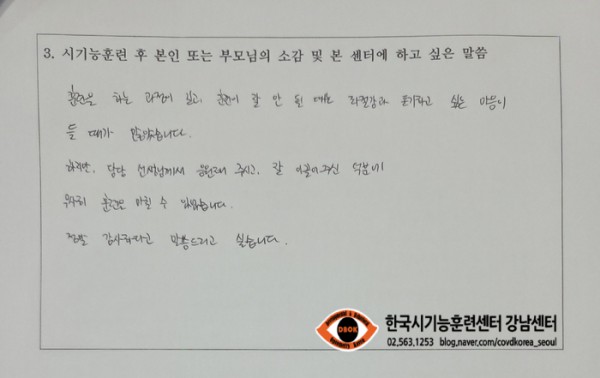 3. 시기능훈련 후 본인 또는 부모님의 소감 및 본 센터에 하고 싶은 말씀
훈련을 하는 과정이 길고, 훈련이 잘 안 될 때는 좌절감과 포기하고 싶은 마음이
들 때가 많았습니다.
하지만, 담당 선생님께서 응원해 주시고, 잘 이끌어주신 덕분에
무사히 훈련을 마칠 수 있었습니다.
정말 감사하다고 말씀드리고 싶습니다.
DBOK
한국시기능훈련센터 강남센터
02.563.1253 blog.naver.com/covdkorea_seoul